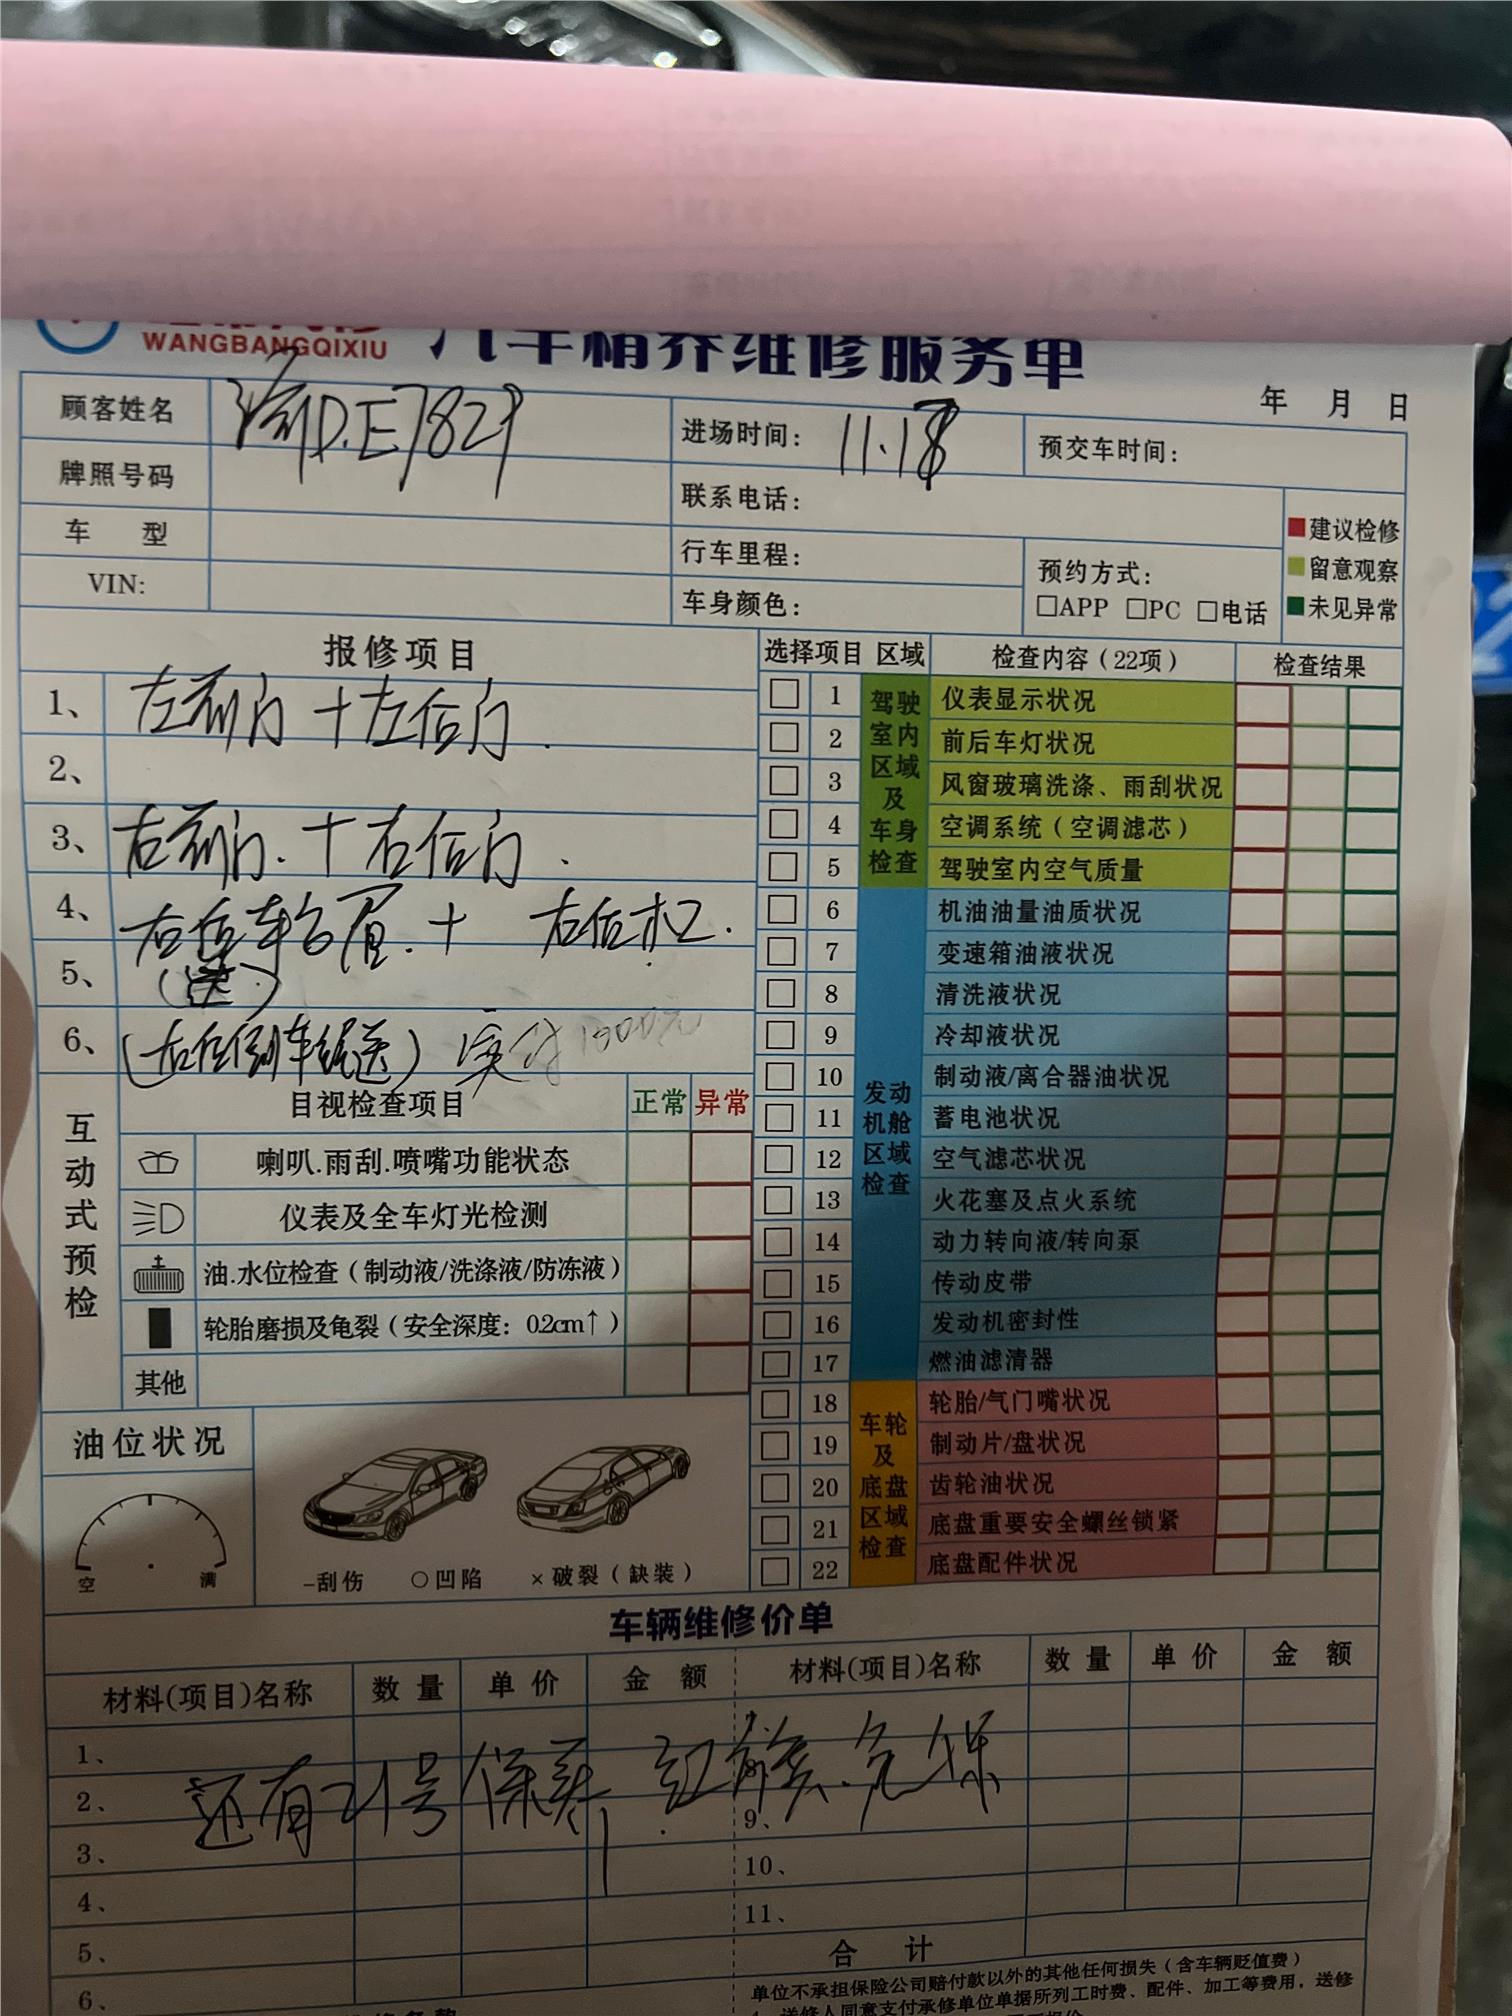 WANGBANGQIXIU 汽车精养维修服务单
年 月 日
顾客姓名 渝D.E7829 进场时间： 11.18 预交车时间：
牌照号码 联系电话：
车 型 行车里程： 预约方式：
VIN: 车身颜色： □APP □PC □电话
建议检修
留意观察
未见异常
报修项目
1、 左前门+左后门.
2、
3、 右前门.+右后门.
4、 右后车台眉.+ 右后杠.
5、 (送)
6、 (右后倒车镜送) 实付1300元
互动式预检
目视检查项目 正常 异常
喇叭.雨刮.喷嘴功能状态
仪表及全车灯光检测
油.水位检查（制动液/洗涤液/防冻液）
轮胎磨损及龟裂（安全深度：0.2cm↑）
其他
油位状况
空 满
–刮伤 ○凹陷 ×破裂（缺装）
选择项目 区域 检查内容（22项） 检查结果
驾驶室内区域及车身检查
1 仪表显示状况
2 前后车灯状况
3 风窗玻璃洗涤、雨刮状况
4 空调系统（空调滤芯）
5 驾驶室内空气质量
发动机舱区域检查
6 机油油量油质状况
7 变速箱油液状况
8 清洗液状况
9 冷却液状况
10 制动液/离合器油状况
11 蓄电池状况
12 空气滤芯状况
13 火花塞及点火系统
14 动力转向液/转向泵
15 传动皮带
16 发动机密封性
17 燃油滤清器
车轮及底盘区域检查
18 轮胎/气门嘴状况
19 制动片/盘状况
20 齿轮油状况
21 底盘重要安全螺丝锁紧
22 底盘配件状况
车辆维修价单
材料(项目)名称 数量 单价 金额 材料(项目)名称 数量 单价 金额
1、
2、 还有21号保养, 红旗.免保
3、 9、
4、 10、
5、 11、
6、 合 计
单位不承担保险公司赔付款以外的其他任何损失（含车辆贬值费）
送修人同意支付承修单位单据所列工时费、配件、加工等费用，送修